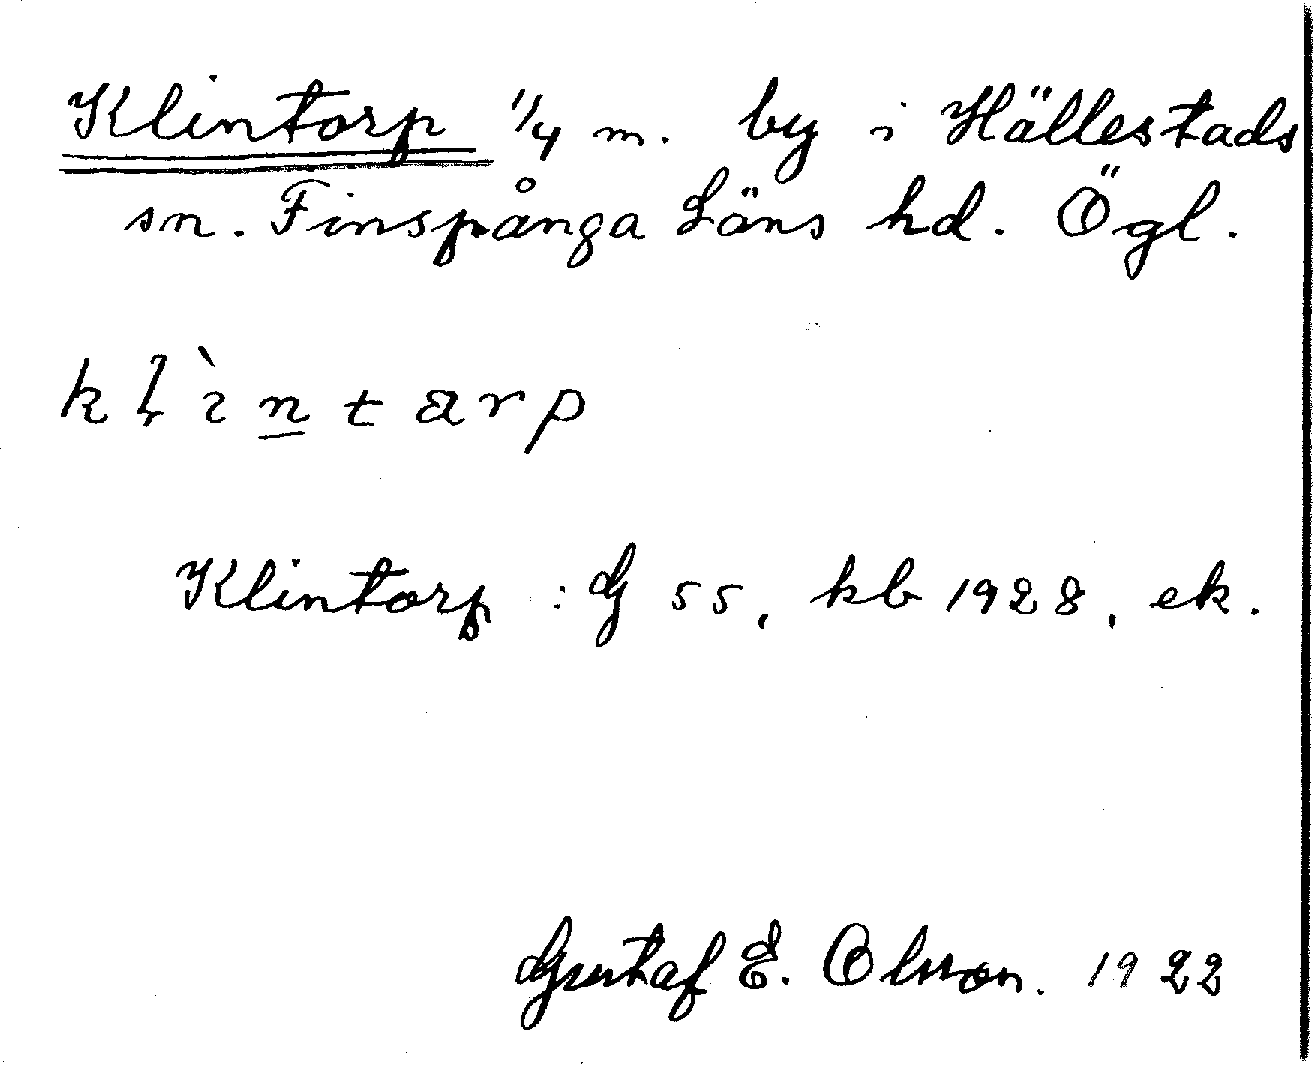 Klintorp 1/4 m. by i Hällestads
sn. Finspånga Läns hd. Ögl.
Klintorp : G 55, kb 1928, ek.
Gustaf E. Olsson. 1922